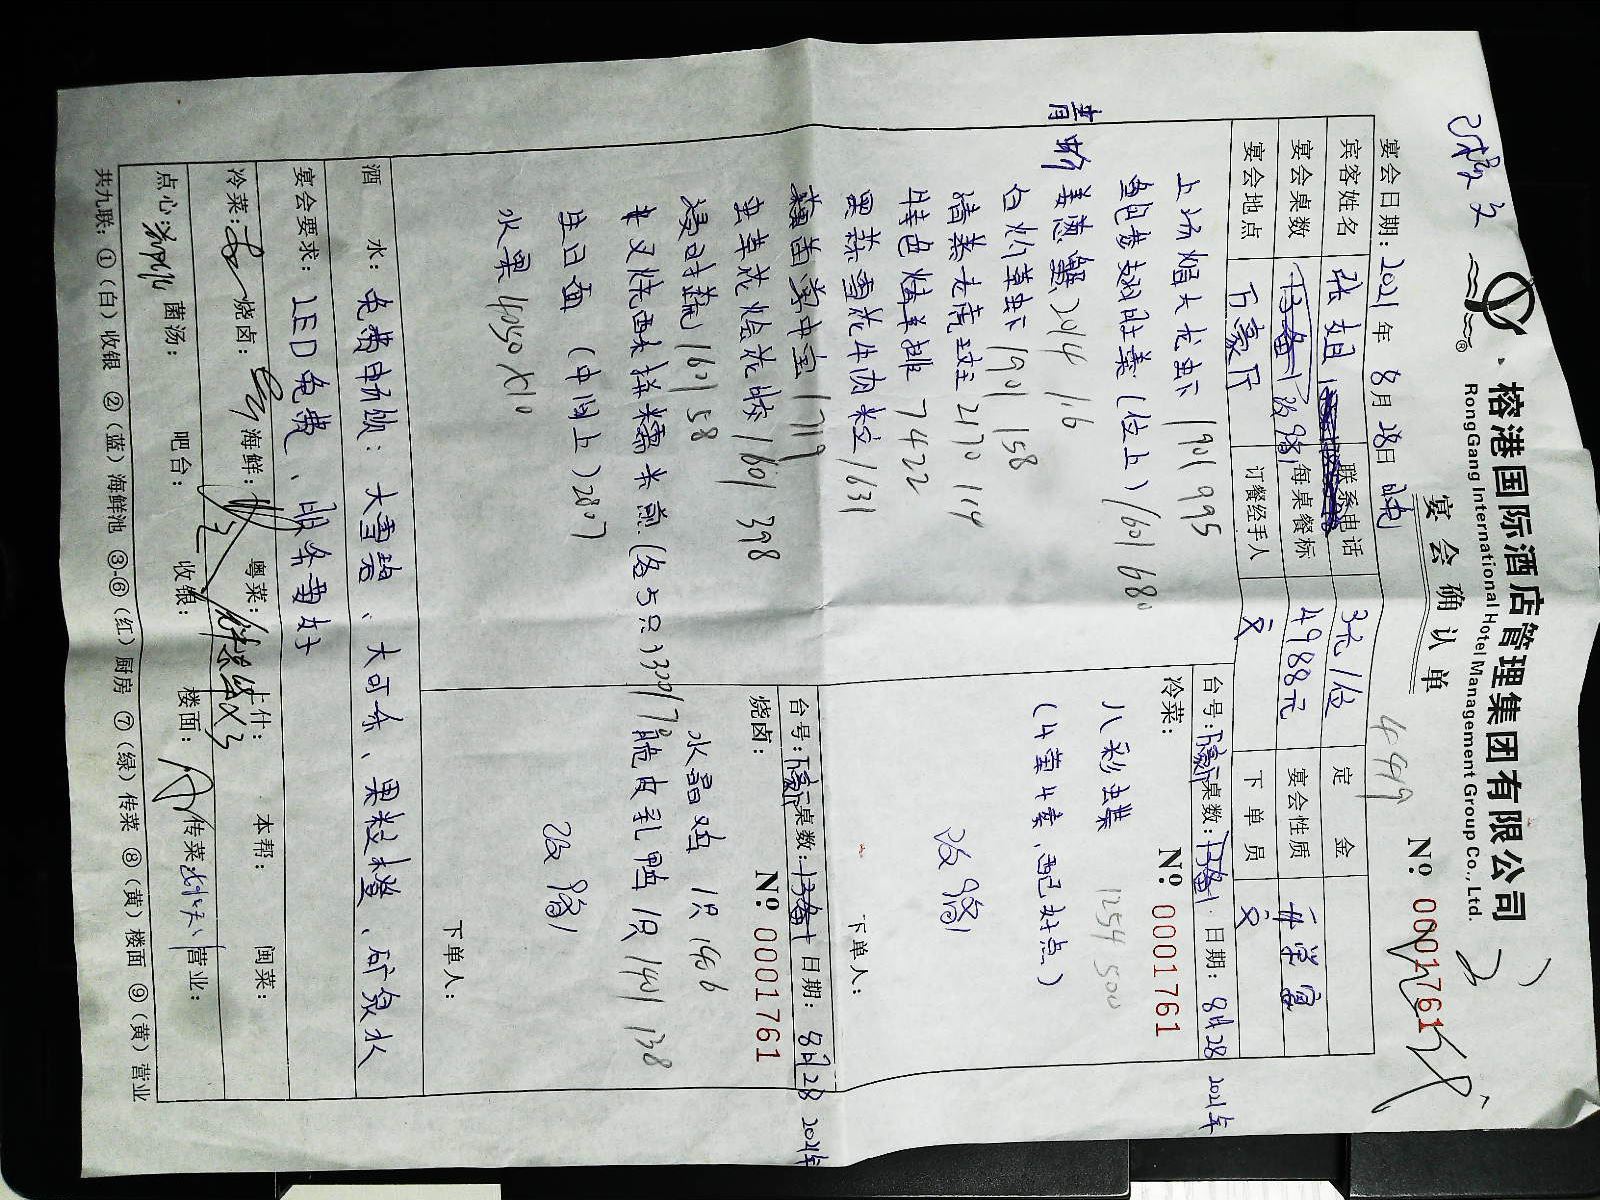 榕港国际酒店管理集团有限公司
RongGang International Hotel Management Group Co., Ltd.
宴会确认单
№: 0001761
宴会日期: 2021年 8月28日 晚
4499
宾客姓名 张姐 联系电话 3元/位 定金
宴会桌数 每桌餐标 4988元 宴会性质
宴会地点 万豪厅 订餐经手人 下单员
上汤焗大龙虾 1901 995
鲍参翅肚羹(位上) 1601 680
青蚧 姜葱蟹 2044 116
白灼草虾 1901 158
清蒸 2170 114
特色烤羊排 7422
黑蒜雪花牛肉粒 1631
1719
虫草花烩花胶 1601 398
时蔬 1601 58
叉烧酥拼糯米煎(各5只) 3300
生日面(中间上) 2807
水果 4050×10
台号: 桌数: 日期: 8月28 2021年
冷菜: №: 0001761
八彩蝶 1254 500
(4荤4素、配好点)
改婚
下单人:
台号: 桌数: 日期: 8月28 2021年
烧卤: №: 0001761
水晶鸡 1只 1406
脆皮乳鸭 1只 1401 138
改婚
下单人:
酒水: 免费畅饮: 大雪碧、大可乐、果粒橙、矿泉水
宴会要求: LED免费、服务要好
冷菜: 烧卤: 海鲜: 粤菜: 上什: 本帮: 闽菜:
点心: 菌汤: 吧台: 收银: 楼面: 传菜: 营业:
共九联: ①(白)收银 ②(蓝)海鲜池 ③-⑥(红)厨房 ⑦(绿)传菜 ⑧(黄)楼面 ⑨(黄)营业